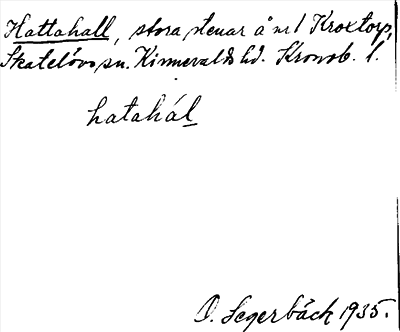 Hattahall, stora stenar å nr 1 Kroxtorp,
Skatelövs sn. Kinnevalds hd. Kronob. l.
hatahál
O. Segerbäck 1935.